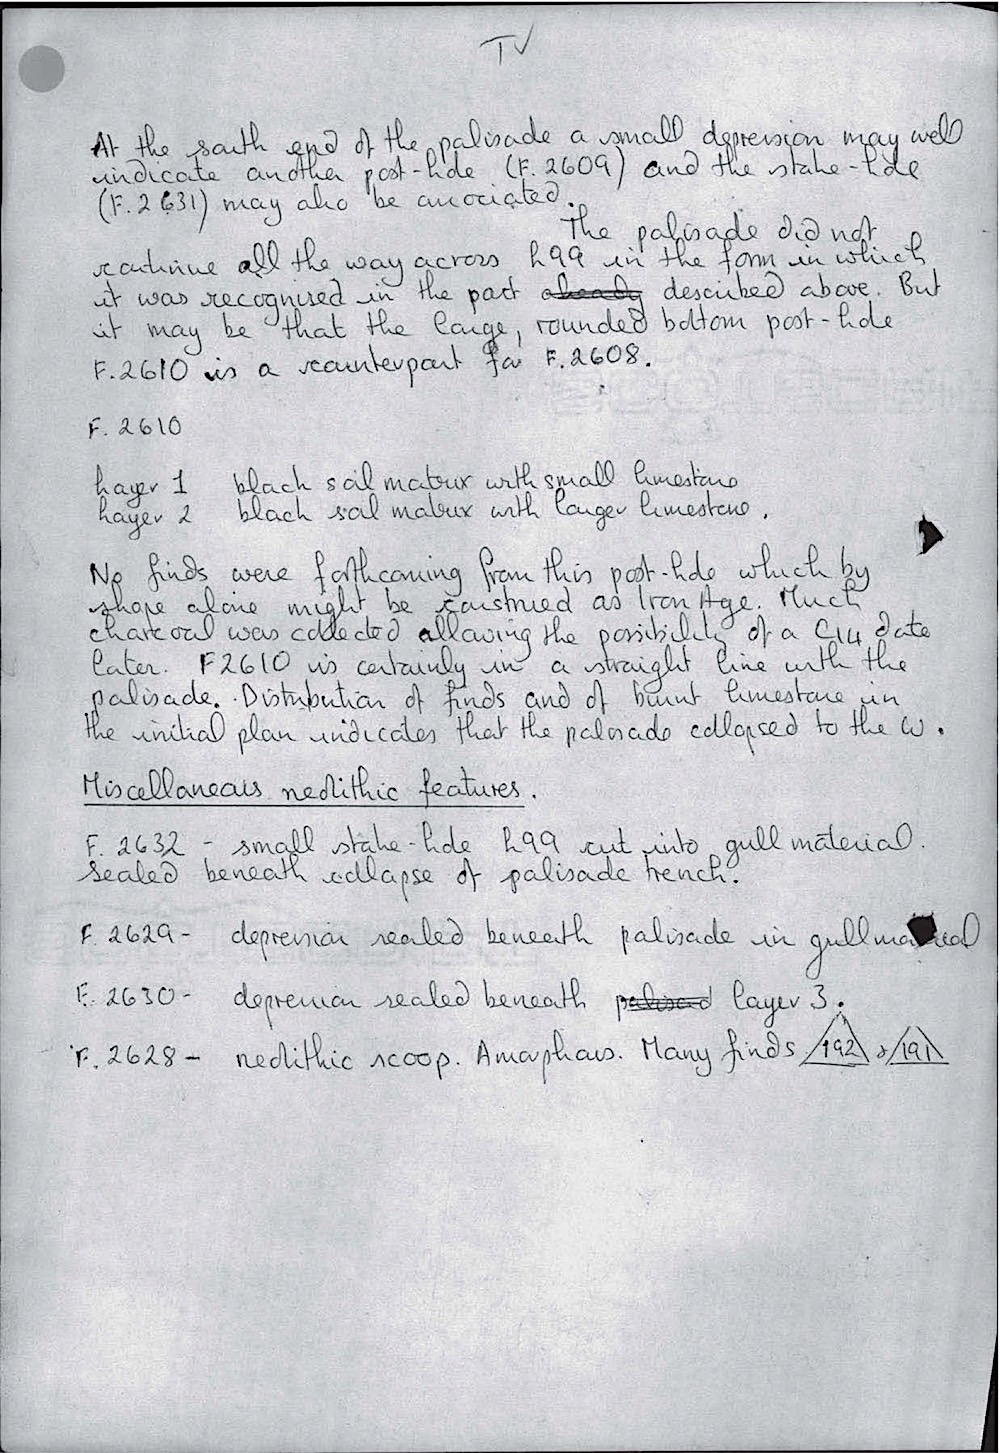 TV
At the south end of the palisade a small depression may well
indicate another post-hole (F. 2609) and the stake-hole
(F. 2631) may also be associated.
The palisade did not
continue all the way across L99 in the form in which
it was recognised in the part already described above. But
it may be that the large, rounded bottom post-hole
F.2610 is a counterpart for F.2608.
F. 2610
Layer 1 black soil matrix with small limestone
Layer 2 black soil matrix with larger limestone.
No finds were forthcoming from this post-hole which by
shape alone might be construed as Iron Age. Much
charcoal was collected allowing the possibility of a C14 date
later. F2610 is certainly in a straight line with the
palisade. Distribution of finds and of burnt limestone in
the initial plan indicates that the palisade collapsed to the W.
Miscellaneous neolithic features.
F. 2632 - small stake-hole L99 cut into gull material.
Sealed beneath collapse of palisade trench.
F. 2629 - depression sealed beneath palisade in gull material
F. 2630 - depression sealed beneath palisad layer 3.
F. 2628 - neolithic scoop. Amorphous. Many finds 192 & 191